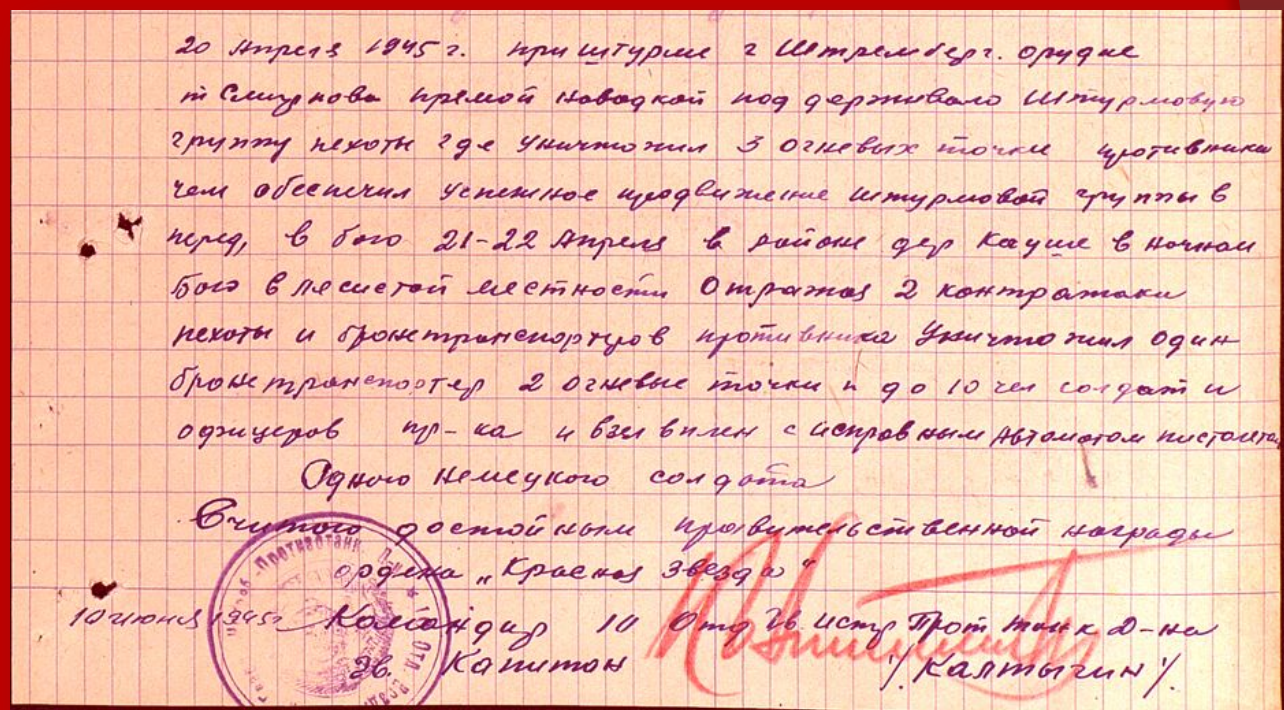 20 Апреля 1945 г. при штурме г Штремберг. орудие
т Смирнова прямой наводкой поддерживало Штурмовую
группу пехоты где Уничтожил 3 огневых точки противника
чем обеспечил успешное продвижение штурмовой группы в
перед, в бою 21-22 Апреля в районе дер Кауше в ночном
бою в лесистой местности Отражая 2 контратаки
пехоты и бронетранспортеров противника Уничтожил один
бронетранспортер 2 огневые точки и до 10 чел солдат и
офицеров пр-ка и взял в плен с исправным Автоматом пистолетом
Одного Немецкого солдата
Считаю достойным правительственной награды
ордена „Красная Звезда"
10 июня 1945г Командир 10 Отд Гв. истр Прот танк д-на
Гв. Капитан /Калтыгин/.